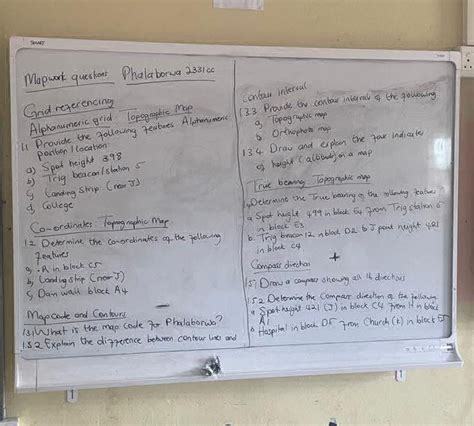 Mapwork questions Phalaborwa 2331cc
Grid referencing
Alphanumeric grid Topographic Map
1.1 Provide the following features Alphanumeric
Position / location:
a) Spot height 398
b) Trig beacon/station 5
c) Landing strip (near J)
d) College
Co-ordinates: Topographic Map
1.2 Determine the co-ordinates of the following
features
a) .A in block C5
b) Landing strip (near J)
c) Dam wall block A4
Map Code and Contours
1.3.1 What is the map code for Phalaborwa?
1.3.2 Explain the difference between contour lines and
Contour interval
1.3.3 Provide the contour intervals of the following
a) Topographic map
b) Orthophoto map
1.3.4 Draw and explain the four indicates
of height (altitude) on a map
True bearing: Topographic map
Determine the True bearing of the following features
a Spot height 499 in block E4 from Trig station 6
in block E3
b. Trig beacon 12 in block D2 to spot height 421
in block C4
Compass direction
Draw a compass showing all 16 directions
1.5.2 Determine the Compass direction of the following
a Spot height 421 (J) in block C4 from H in block
A1
b Hospital in block D5 from Church (k) in block E5